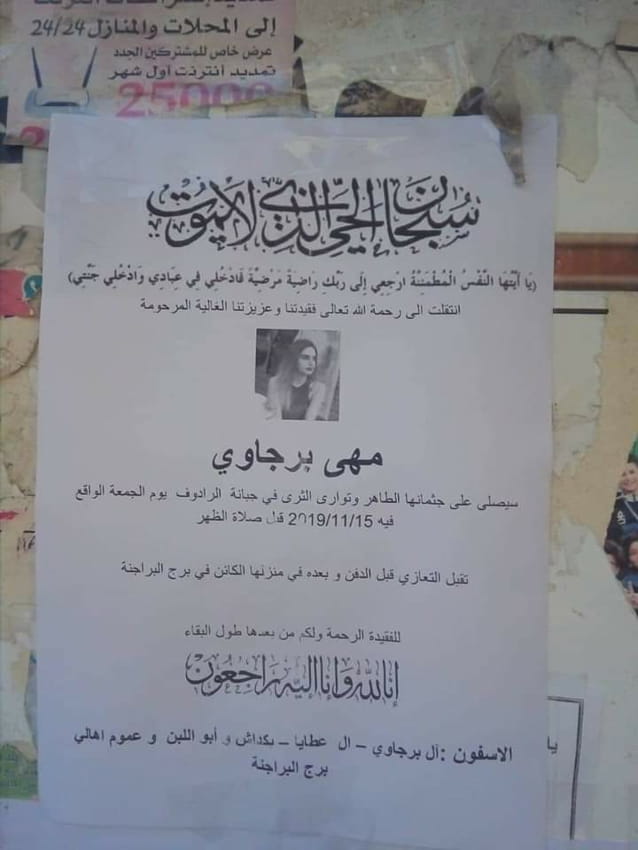 إلى المحلات والمنازل 24/24
عرض خاص للمشتركين الجدد
تمديد أنترنت أول شهر
25000
سبحان الحي الذي لا يموت
(يَا أَيَّتُهَا النَّفْسُ الْمُطْمَئِنَّةُ ارْجِعِي إِلَى رَبِّكِ رَاضِيَةً مَرْضِيَّةً فَادْخُلِي فِي عِبَادِي وَادْخُلِي جَنَّتِي)
انتقلت الى رحمة الله تعالى فقيدتنا وعزيزتنا الغالية المرحومة
مهى برجاوي
سيصلى على جثمانها الطاهر وتوارى الثرى في جبانة الرادوف يوم الجمعة الواقع
فيه 2019/11/15 قبل صلاة الظهر
تقبل التعازي قبل الدفن و بعده في منزلها الكائن في برج البراجنة
للفقيدة الرحمة ولكم من بعدها طول البقاء
إنا لله وإنا إليه راجعون
الاسفون :آل برجاوي – ال عطايا – بكداش و أبو اللبن و عموم اهالي
برج البراجنة